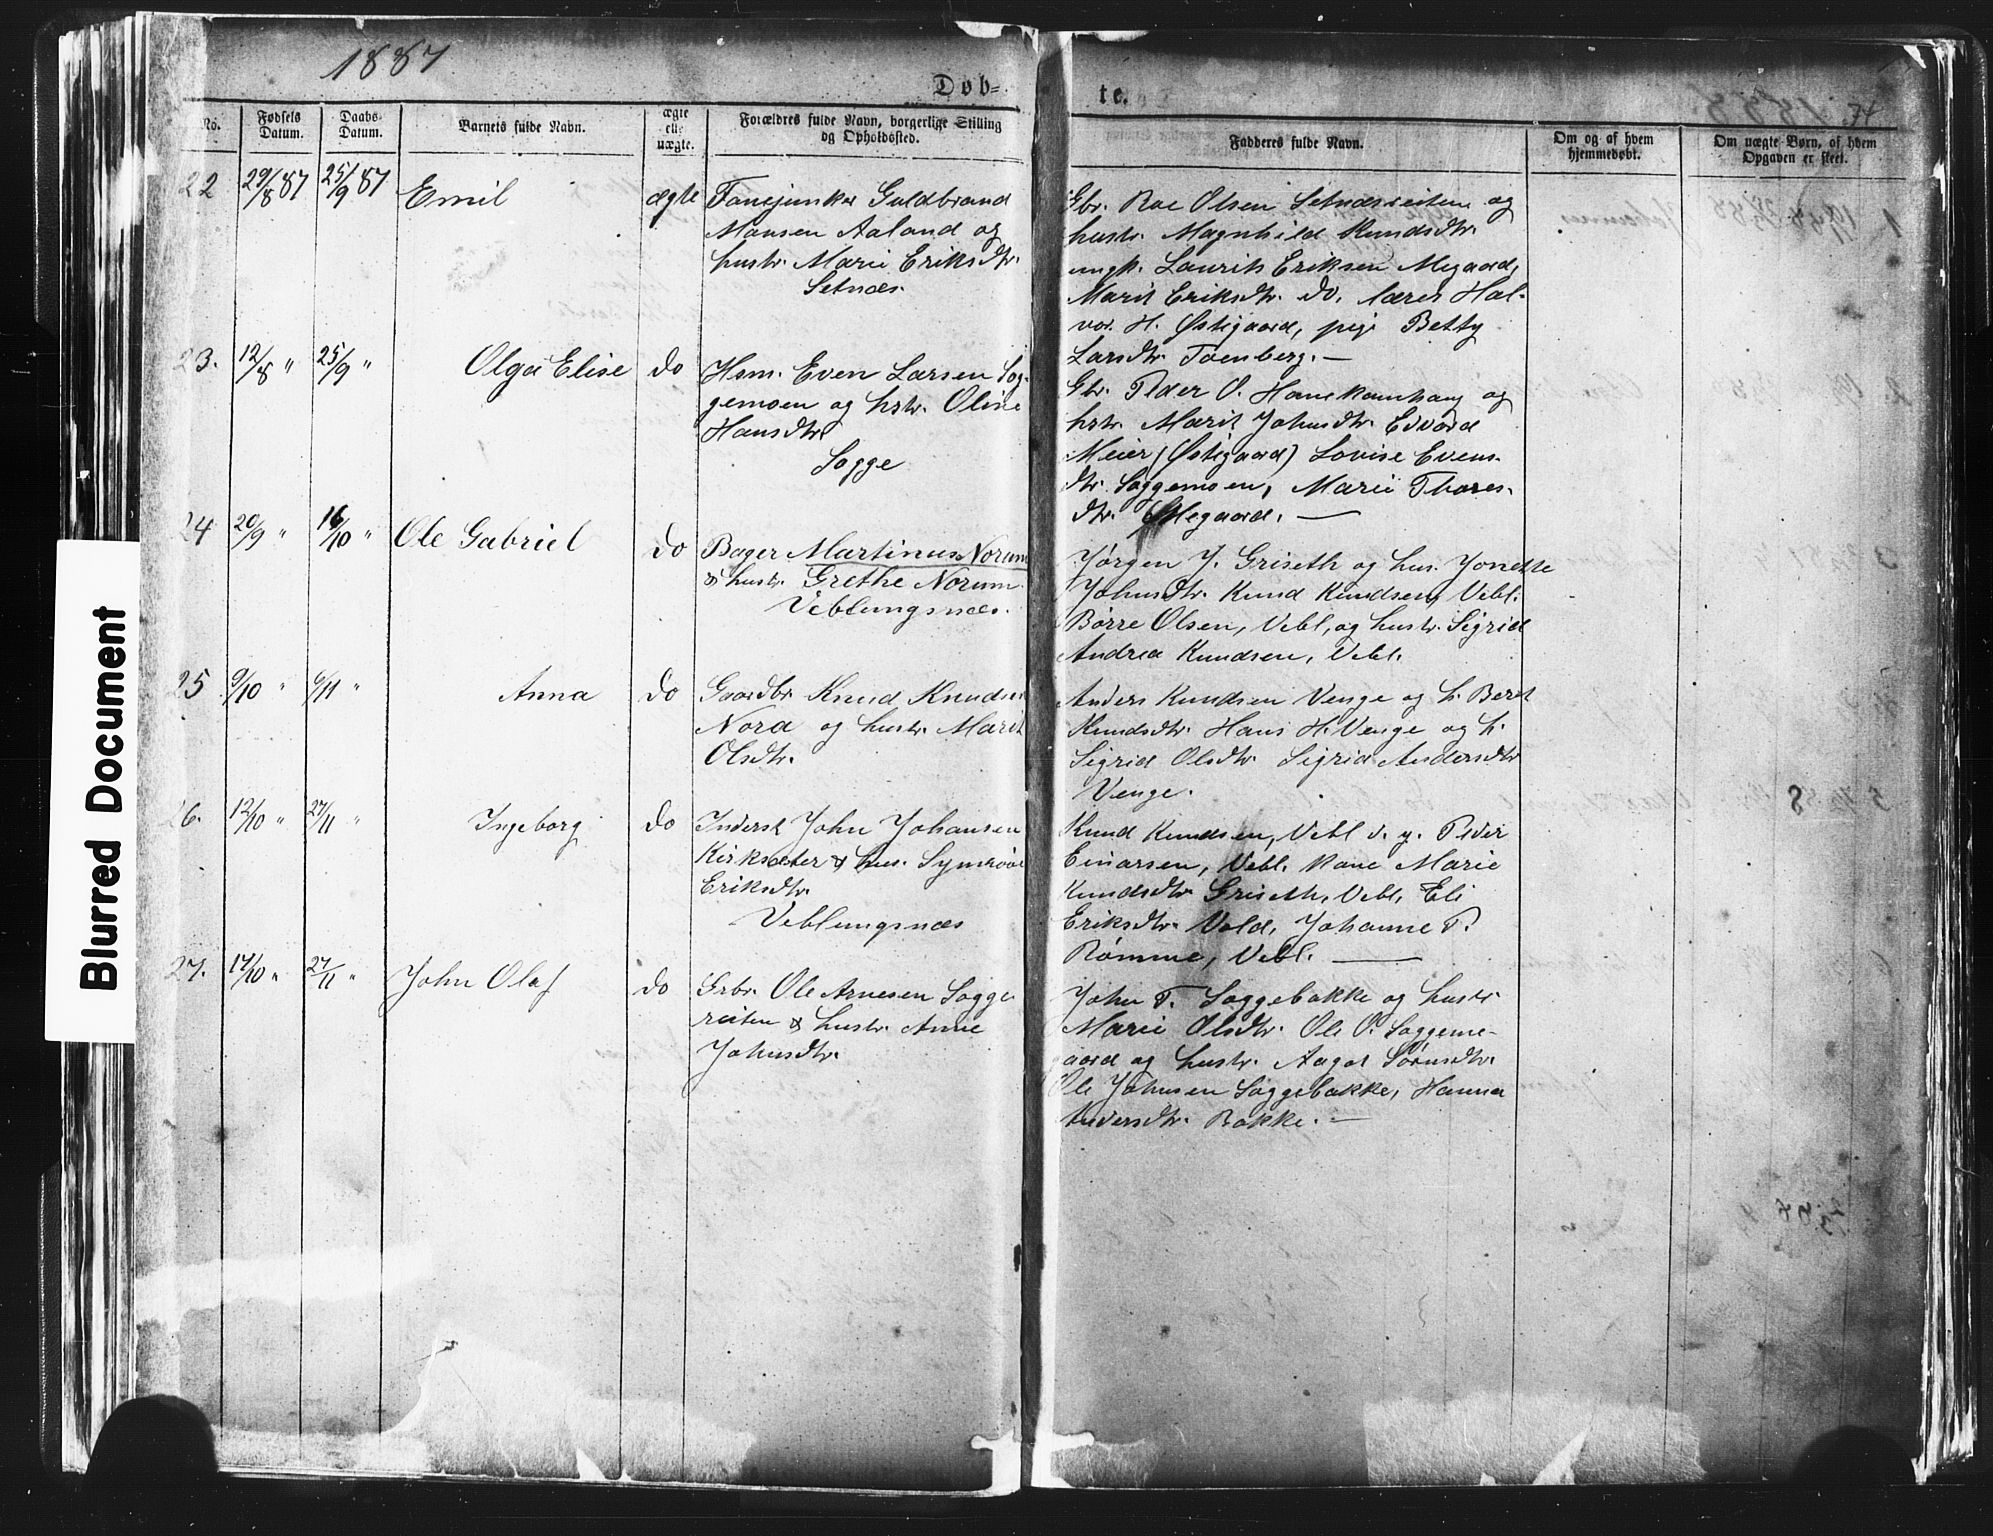 1887
Døb=
te.
74
No.
Fødsels Datum.
Daabs-Datum.
Barnets fulde Navn.
ægte eller uægte.
Forældres fulde Navn, borgerlige Stilling
og Opholdssted.
Fadderes fulde Navn.
Om og af hvem
hjemmedøbt.
Om uægte Børn, af hvem
Opgaven er skeet.
22 29/8 87 25/9 87 Emil ægte Fanejunker Guldbrand
Monsen Aaland og
hustr. Marie Eriksdtr.
Setnæs.
Gbr. Roe Olsen Setnæsreiten og
hustr. Magnhild Knudsdtr.
ungk. Laurits Eriksen Megaard,
Marit Eriksdtr. do, lærer Hal-
vor H. Østigaard, pige Betty
Larsdtr. Toenberg. —
23. 12/8 " 25/9 " Olga Elise do Hsm. Even Larsen Sog-
gemoen og hstr. Oline
Hansdtr
Sogge
Gbr. Peder O. Hanekamhaug og
hstr. Marit Johnsdtr. Edvard
Meier (Østigaard) Lovise Evens-
dtr. Soggemoen, Marie Thores-
dtr. Megaard. —
24 20/9 " 16/10 " Ole Gabriel do Bager Martinus Norum
& hustr. Grethe Norum
Veblungsnæs.
Jørgen J. Griseth og hus. Jonette
Johnsdtr. Knud Knudsen, Vebl.
Børre Olsen, Vebl, og hustr. Sigrid
Andrea Knudsen, Vebl.
25 9/10 " 6/11 " Anna do Gaardbr Knud Knudsen
Nora og hustr. Marit
Olsdtr.
Anders Knudsen Venge og h. Beret
Knudsdtr. Hans H. Venge og h.
Sigrid Olsdtr. Sigrid Andersdtr
Venge.
26. 12/10 " 27/11 " Ingeborg do Inderst John Johansen
Kirksæter & hus. Synnøve
Eriksdtr.
Veblungsnæs
Knud Knudsen, Vebl d. y. Peder
Einarsen, Vebl. kone Marie
Knudsdtr Griseth, Vebl, Eli
Eriksdtr. Vold, Johanne P.
Rømme, Vebl. —
27. 17/10 " 27/11 " John Olaf do Grbr. Ole Arnesen Sogge
reiten & hustr. Anne
Johnsdtr.
John T. Soggebakke og hustr
Marie Olsdtr. Ole O. Soggeme-
gaard og hustr. Aagot Sørensdtr.
Ole Johnsen Soggebakke, Hanna
Andersdtr. Bakke. —
Blurred Document